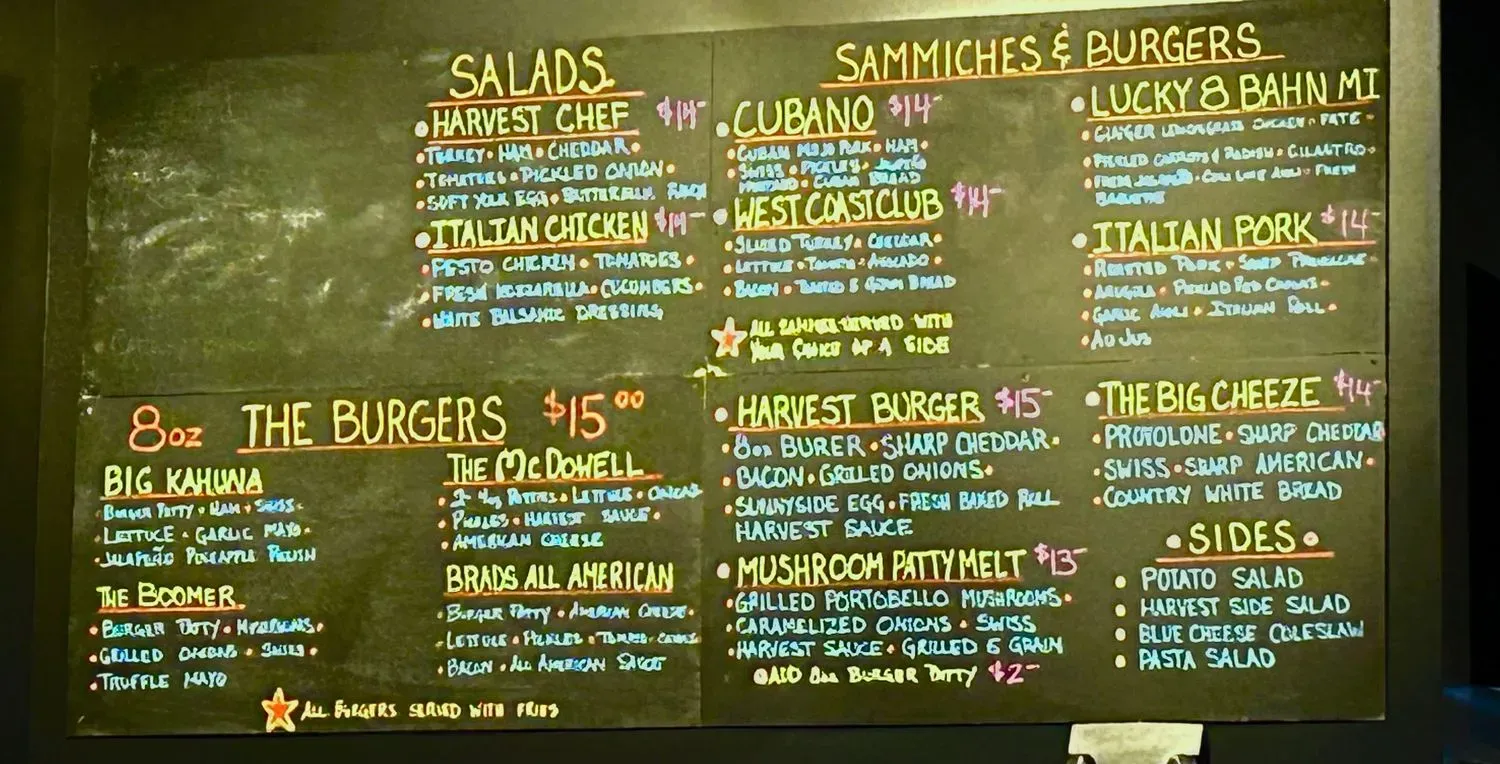 SALADS
HARVEST CHEF $14-
TURKEY • HAM • CHEDDAR •
TOMATOES • PICKLED ONION •
SOFT YOLK EGG • BUTTERMILK RANCH
ITALIAN CHICKEN $14-
PESTO CHICKEN • TOMATOES •
FRESH MOZZARELLA • CUCUMBERS •
WHITE BALSAMIC DRESSING
SAMMICHES & BURGERS
CUBANO $14-
CUBAN MOJO PORK • HAM •
SWISS • PICKLES •
CUBAN BREAD
WEST COAST CLUB $14-
SLICED TURKEY • CHEDDAR •
LETTUCE • TOMATO • AVOCADO •
BACON • TOASTED 5 GRAIN BREAD
ALL SERVED WITH
YOUR CHOICE OF A SIDE
LUCKY 8 BAHN MI
GINGER LEMONGRASS CHICKEN • PATE •
PICKLED CARROTS & RADISH • CILANTRO •
FRESH • FRESH
BAGUETTE
ITALIAN PORK $14-
ROASTED PORK • SHARP PROVOLONE •
ARUGULA • PICKLED RED ONIONS •
GARLIC AIOLI • ITALIAN ROLL •
AU JUS
8oz THE BURGERS $15.00
BIG KAHUNA
BURGER PATTY • HAM • SWISS •
LETTUCE • GARLIC MAYO •
JALAPEÑO PINEAPPLE RELISH
THE BOOMER
BURGER PATTY • MUSHROOMS •
GRILLED ONIONS • SWISS •
TRUFFLE MAYO
THE McDOWELL
PATTIES • LETTUCE • ONIONS
PICKLES • HARVEST SAUCE •
AMERICAN CHEESE
BRADS ALL AMERICAN
BURGER PATTY • AMERICAN CHEESE •
LETTUCE • PICKLES • TOMATO •
BACON • ALL AMERICAN SAUCE
ALL BURGERS SERVED WITH FRIES
HARVEST BURGER $15-
8oz BURER • SHARP CHEDDAR •
BACON • GRILLED ONIONS •
SUNNYSIDE EGG • FRESH BAKED ROLL
HARVEST SAUCE
MUSHROOM PATTY MELT $13-
GRILLED PORTOBELLO MUSHROOMS •
CARAMELIZED ONIONS • SWISS
HARVEST SAUCE • GRILLED 5 GRAIN
ADD 8oz BURGER PATTY $2-
THE BIG CHEEZE $14-
PROVOLONE • SHARP CHEDDAR
SWISS • SHARP AMERICAN •
COUNTRY WHITE BREAD
• SIDES •
POTATO SALAD
HARVEST SIDE SALAD
BLUE CHEESE COLESLAW
PASTA SALAD